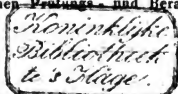 en Prüfungs- und Bera
Koninklijke
Bibliotheek
te 's Hage.